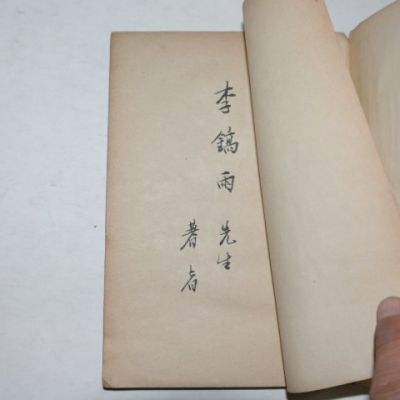 李鎬雨 先生
著者